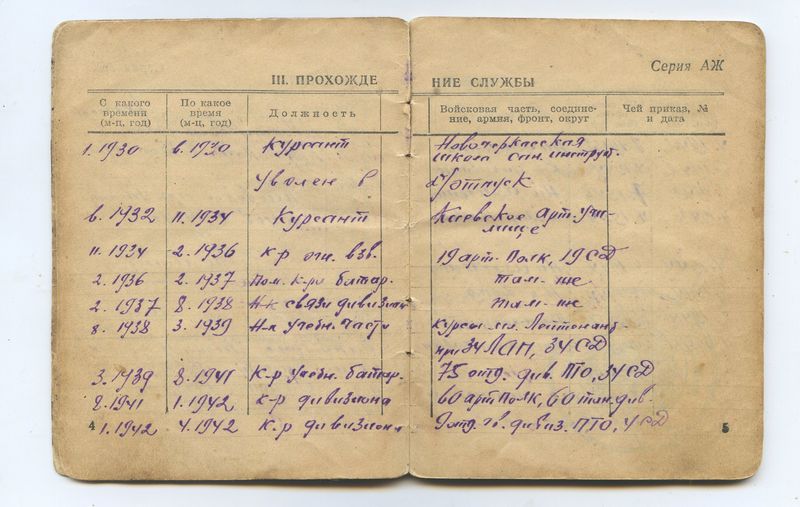 Серия АЖ
III. ПРОХОЖДЕ НИЕ СЛУЖБЫ
С какого времени (м-ц, год) По какое время (м-ц, год) Должность Войсковая часть, соедине- ние, армия, фронт, округ Чей приказ, № и дата
1.1930 6.1930 Курсант Новочеркасская
школа сан. инструт.
Уволен в д/отпуск
6.1932 11.1934 Курсант Киевское арт. учи-
лище
11.1934 2.1936 к-р огн. взв. 19 арт. Полк, 19 СД
2.1936 2.1937 Пом. к-ра батар. там-же
2.1937 8.1938 Н-к связи дивизиона там-же
8.1938 3.1939 Н-к учебн. части курсы мл. Лейтенант-
при 34 ЛАП, 34 СД
3.1939 8.1941 К-р учебн. батар. 75 отд. див. ПТО, 34 СД
8.1941 1.1942 к-р дивизиона 60 арт Полк, 60 див.
1.1942 4.1942 К-р дивизиона 9 отд. гв. дивиз. ПТО, 4 СД
4 5